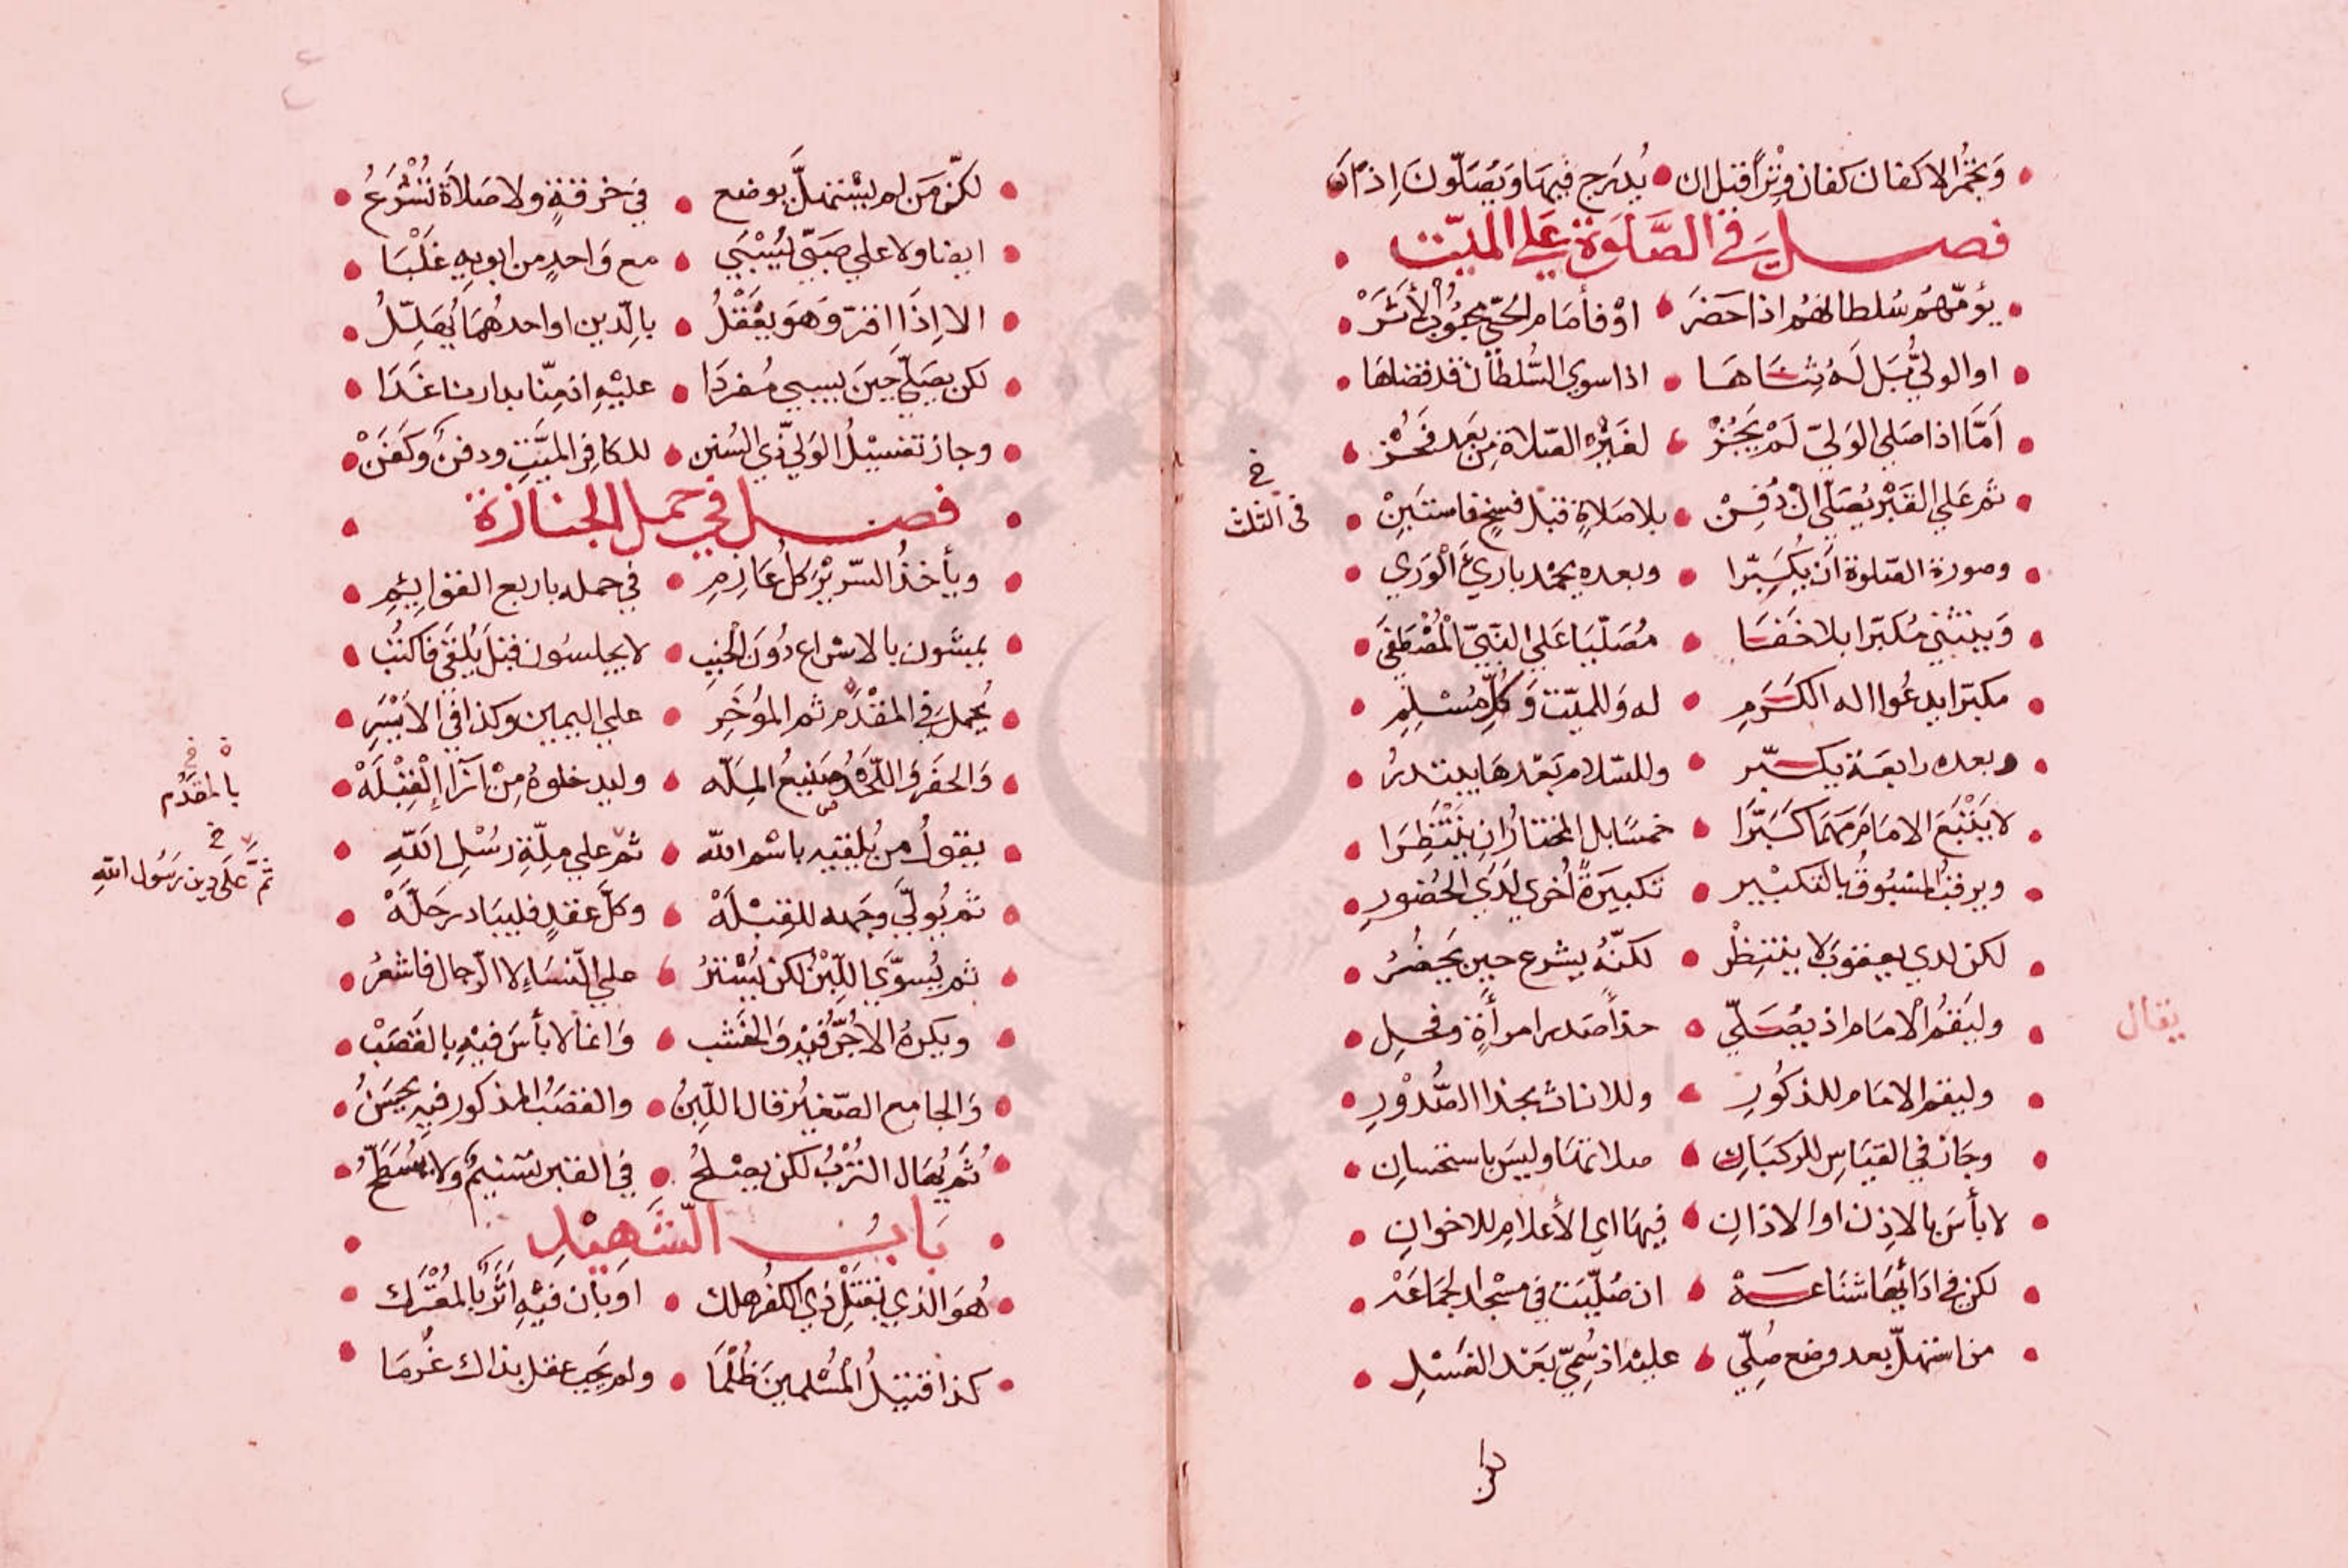 وَتجمَّرُ الاكفان كفان وِتْراً قبل ان • يُدرَج فيهَا وَيُصَلّونَ اِذاً
فصل في الصَّلَوة علي الميّت
يؤمّهمُ سُلطانهُم اذا حَضَرَ • اوْ فأمَام الحَيّ
او الوليُّ بَل لَهُ ثِنَاهَا • اذا سوي السُّلطانُ قد قضاهَا
اَمَّا اذا صَلي الوَليّ لَمْ يَجُزْ • لغَيْرِهِ الصّلاة مِن بَعد فَحُزْ
ثم عَلي القَبْر يُصَلّي اِنْ دُفِنْ • بلا صَلاةٍ قبل فسخٍ فاستَبِنْ
في الثلث
وصورة الصّلوة اَن يُكبِّرا • وبعده يحمْد بارئَ الْوَري
وَينثني مُكبّرا بلا خَفَا • مُصَلّيَا عَلي النَّبيّ الْمُصْطَفَي
مكبّرا يدعُوا اله الكَرَمِ • له وَللميّت وَكُلِّ مُسْلِمِ
وبعده رابعَة يكبّر • وللسّلام بَعْدهَا يبتدرُ
لا يَتْبَع الامَامَ مَهمَا كَبَّرَا • خمسًا بل المختارُ ان يَنْتَظِرَا
ويرقبُ المسْبُوقُ بالتكبْير • تكبيرَةً اُخري لَدَي الحُضورِ
لكن لدي يعقوبَ لا ينتظِرْ • لكنّهُ يشرع حين يَحْضُرُ
وليَقمُ الْامَام اذ يصَلّي • حذا صَدر امرأةٍ وفحلِ
يقال
وليقم الامَام للذكُورِ • وللاناث بحذا الصُّدُوْرِ
وجَاز في القيَاسِ للركبَانِ • وليسَ باستحسانِ
لا بأسَ بالاِذن او الاذانِ • فيهَا اي الأعلامِ للاخوانِ
لكن في ادَائهَا شنَاعَة • ان صُلّيَت في مسْجد الجَمَاعَهْ
من استهلّ بعد وضع صُلّي • عليْه اذ سُمِّيْ بَعْد الغَسْلِ
لكنّ مَن لم يسْتهلَّ يوضع • في خرقةٍ ولا صَلاَة تُشْرَعُ
ايضا ولا علي صَبيّ يُسْبَي • مع وَاحدٍ من ابويهِ غَلْبَا
الا اِذَا اقرّ وَهوَ يعْقلُ • بالدّين او احدهُمَا
لكن يصَلّي حِينَ يسبي مُفردَا • عليْهِ اذ مِنّا بدارنا غَدَا
وجاز تغسيْلُ الوَليّ ذي السُنن • للكافِر الميَّتِ ودفنٌ وكَفَنْ
فصل في حمل الجنازة
ويأخذُ السّريْرَ كلُ عَازِمِ • في حمله باربع القوايِمِ
يمشون بالاسْراع دُوْنَ الْخَبَبِ • لا يجلسُون قبلَ يُلْقَي فاكتُبْ
يُحمل في المقْدَّمِ ثم المؤخَرِ • علي اليمين وكذا في الاَيْسَرِ
بالمقدَّم
وَالحفْر وَاللّحْدُ صَنيعُ الملّه • وليدخلوهُ مِنْ ازَاءِ الْقِبْلَهْ
يقولُ من يُلقيه باسْم اللّه • ثم علي مِلّةِ رسُلِ اللَّهِ
ثمّ عَلَي دِينِ رَسُول اللّهِ
ثم يُولّي وجهه للقبْلَهْ • وكلّ عقدٍ فليبَادر حَلَّهْ
ثم يُسوَّي اللّبِنُ لكن يُسْترُ • علي النّسَاءِ لا الرّجال فاشعرُ
ويكرهُ الاٰجُرُّ فيْه وَالخشب • وَانما لا بأسَ فيْهِ بالقَصَبْ
وَالجامع الصّغيْر قال اللّبِنُ • والقصَبُ المذكور فيهِ يحسَنُ
ثُمَّ يُهَال التُرْبُ لكن يصْلحُ • في القبر تسْنيمٌ ولا يُسَطَّحُ
بَابُ الشَّهِيْدِ
هُوَ الذي بقتْلِ ذي الكُفْر هلك • او بَان فيْهِ اَثَرٌ بالمُعْتَرَك
كذا قتيلُ الْمُسْلمينَ ظُلْمَا • ولم يَجب عقل بذاك غُرمَا